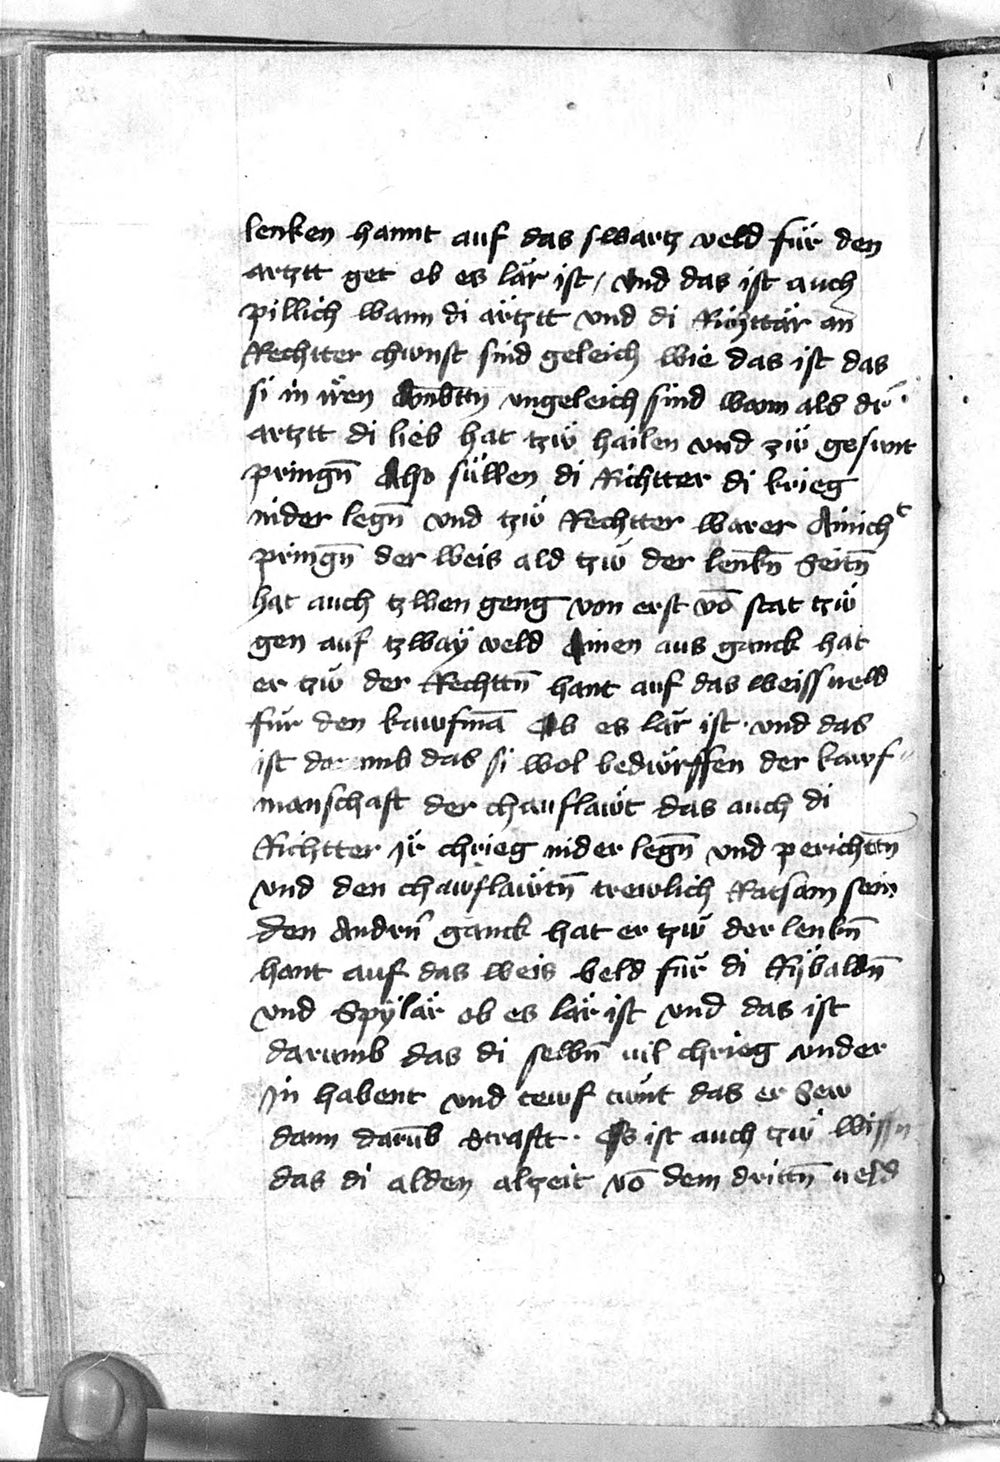 lenken hannt auf das swartz veld für den
artztt get ob es lär ist / vnd das ist auch
pillich wann di ärtztt vnd di Richttär an
Rechtter chunst sind geleich wie das ist das
si in iren ungeleich sind wann als dr̄
artztt di lieb hat tzw̋ hailen vnd zw̋ gesunt
pringn̄ Also süllen di Richtter di krieg
nider legn̄ vnd tzw̋ Rechtter warer Ainicht
pringn̄ der weis ald tzw̋ der lenkn̄ Seitn̄
hat auch tzwen geng von erst vō stat tzw̋
gen auf tzwaÿ veld Ainen aus ganck hat
er tzw̋ der Rechttn̄ hant auf das weiss veld
für den kawfmā Ob es lär ist · vnd das
ist darumb das si wol bedürffen der kawf
manschaft der chauflawt das auch di
Richtter Ir chrieg nider legn̄ vnd perichttn̄
vnd den chawflawtn̄ trewlich Ratsam sein
den Andrn̄ ganck hat er tzw̋ der lenkn̄
hant auf das weis veld für di Ribaldn̄
vnd Spÿlär ob es lär ist vnd das ist
darumb das di selbn̄ vil chrieg vnder
In habent vnd tewf das er Sew
dann darūb Strafft · Es ist auch tzw̋ wissn
das di alden alzeit vō dem drittn̄ veld